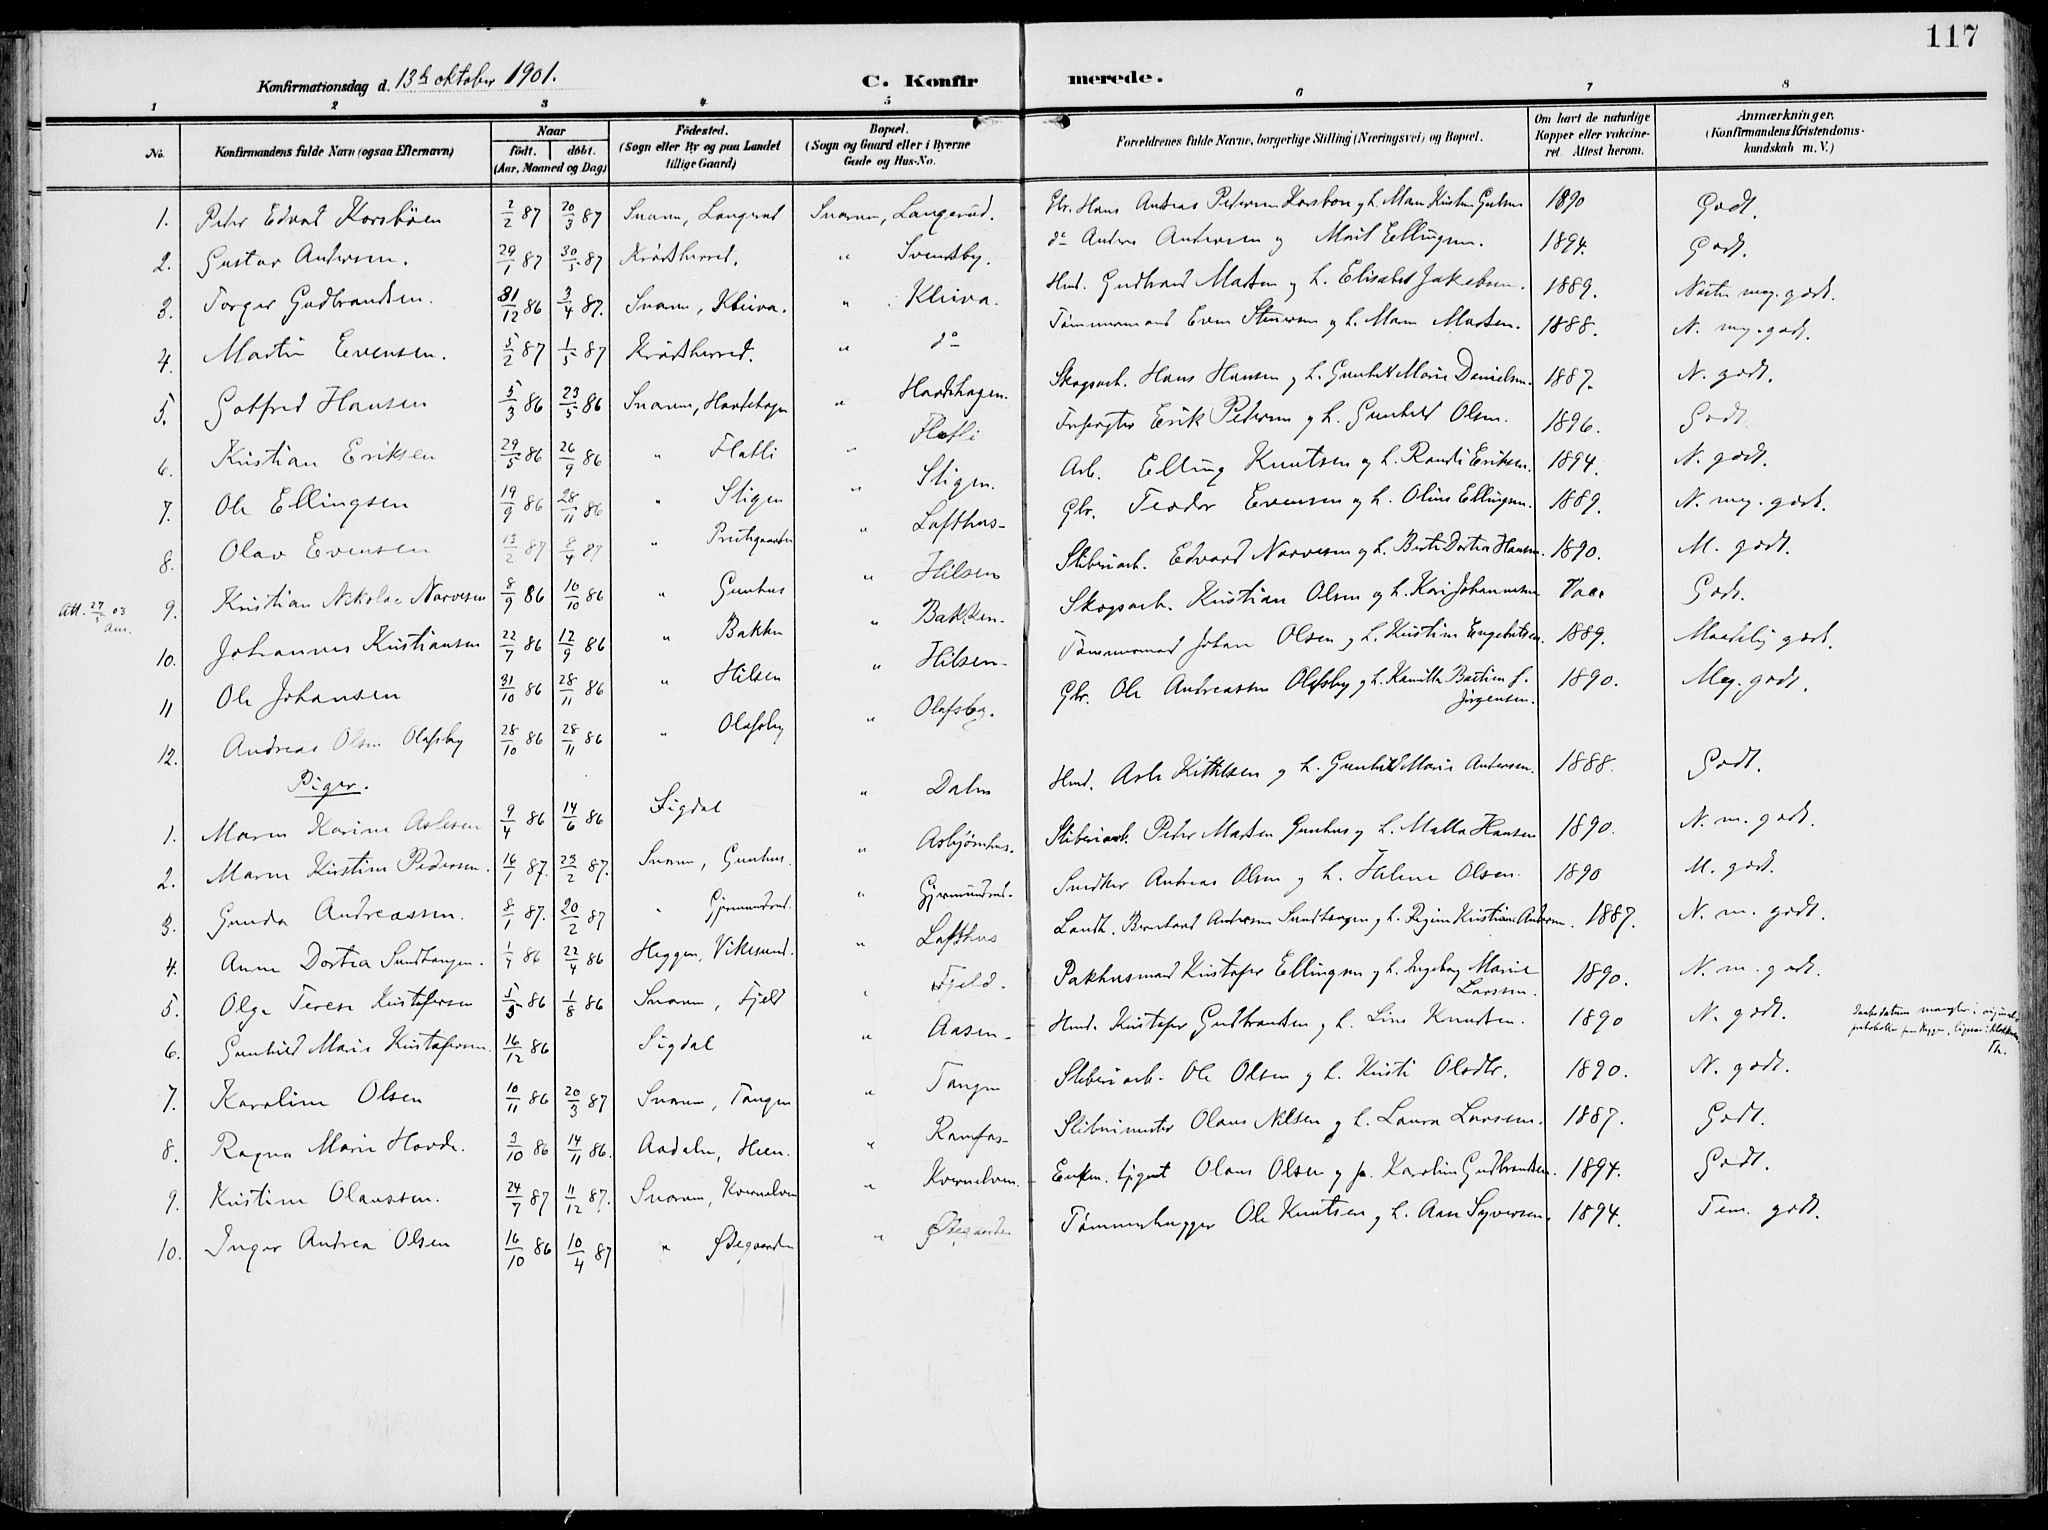 117
Konfirmationsdag d. 13de oktober 1901. C. Konfirmerede.
1 2 3 4 5 6 7 8
No. Konfirmandens fulde Navn (ogsaa Efternavn) Naar født. døbt. (Aar, Maaned og Dag) Fødested. (Sogn eller By og paa Landet tillige Gaard) Bopæl. (Sogn og Gaard eller i Byerne Gade og Hus-No. Forældrenes fulde Navne, borgerlige Stilling (Næringsvei) og Bopæl. Om havt de naturlige Kopper eller vakcineret Attest herom. Anmærkninger, (Konfirmandens Kristendomskundskab m. V.)
1. Peder Edvat Korsbøen 2/2 87 20/3 87 Snarum, Langerud Snarum, Langerud. Gbr. Hans Andreas Pedersen Korsbøn og h. Maren Kirstine 1890 Godt.
2. Gustav Andersen. 29/1 87 30/5 87 Krødsherred. " Svensby. do Anders Andersen og Marit Ellingsen. 1894. Godt.
3. Torger Gudbrandsen. 31/12 86 3/4 87. Snarum, Kleiva. " Kleiva. Hmd. Gudbrand Madsen og h. Elisabet Jakobsen. 1889. Næsten meg. godt.
4. Martin Evensen. 5/2 87 1/5 87 Krødsherred. " do Tømmermand Even Steneren og h. Maren Madsen. 1888. N. meg. godt.
5. Gotfred Hansen 5/3 86 23/5 86 Snarum, Hovdehagen " Hovdehagen. Skogsarb. Hans Hansen og h. Gunhild Marie Danielsen. 1887. N. godt.
6. Kristian Eriksen 29/5 86 26/9 86 " Flatli " Flatli Erik Pedersen og h. Gunhild Olsen. 1896. Godt.
7. Ole Ellingsen 19/9 86 28/11 86 " Stigen " Stigen. Arb. Elling Knutsen og h. Randi Eriksen. 1894. N. godt.
8. Olav Evensen 13/2 87 8/4 87 " " Lofthus Gbr. Teodor Evensen og h. Oline Ellingsen. 1889. N. meg. godt.
Att. 27/5 03 9. Kristian Nikolae Narvesen 8/9 86 10/10 86 " Gunhus " Hilsen Sliberiarb. Edvard Narvesen og h. Berte Dortea Hansen. 1890. M. godt.
10. Johannes Kristiansen 22/7 86 12/9 86 " Bakken " Bakken. Skogsarb. Kristian Olsen og h. Kari Johannesen Godt.
11 Ole Johansen 31/10 86 28/11 86 " Hilsen " Hilsen. Tømmermand Johan Olsen og h. Kirstine Engebretsen. 1889. Maadelig godt.
12. Andreas Olsen Olafsby 28/10 86 28/11 86 " Olafsby " Olafsby. Gbr. Ole Andreassen Olafsby og h. Kamilla Bastine f. Jørgensen. 1890. Meg. godt.
Piger.
1. Maren Karine Aslesen 9/4 86 14/6 86 Sigdal " Dalen Hmd. Asle Kittilsen og h. Gunhild Marie Andersen. 1888. Godt.
2. Maren Kirstine Pedersen. 16/1 87. 23/2 87. Snarum, Gunhus. " Asbjørnhus. Sliberiarb. Peder Madsen Gunhus og h. Malla Hansen 1890. N. m. godt.
3. Gunda Andreassen. 8/1 87. 20/2 87 " Gjermundrud. " Gjermundrud. Snedker Andreas Olsen og h. Helene Olsen. 1890 M. godt.
4. Anne Dortea Sundhaugen. 22/4 86 Heggen, Vikesund. " Lofthus Landh. Bernhard Andersen Sundhaugen og h. Regine Kristiane Andersen. 1887. N. m. godt.
5. Olga Terese Kristofersen 5/5 86 1/8 86 Snarum, Fjeld " Fjeld. Pakhusmand Kristofer Ellingsen og h. Ingeborg Marie Larsen. 1890. N. m. godt.
6. Gunhild Marie Kristofersen. 16/12 86 Sigdal " Aasen Hmd. Kristofer Gudbrandsen og h. Line Knudsen. 1890 N. godt. Daabsdatum mangler i Th.
7. Karoline Olsen 10/11 86 20/3 87 Snarum, Tangen " Tangen Sliberiarb. Ole Olsen og h. Kirsti Olsdtr. 1890. N. godt.
8. Ragna Marie Hovde. 3/10 86 14/11 86. Aadalen, Heen. " Ramfos Sliberimester Olaus Nilsen og h. Laura Larsen. 1887. Godt.
9. Kristine Olaussen. 24/7 87 11/12 87. Snarum, Kvernelven " Kvernelven. Olaus Olsen og Karoline Gudbrandsen. 1894. Godt.
10. Inger Andrea Olsen 16/10 86 10/4 87 " Østegaarden " Østegaarden Tømmerhugger Ole Knutsen og h. Aase Syversen. 1894. Tem. godt.